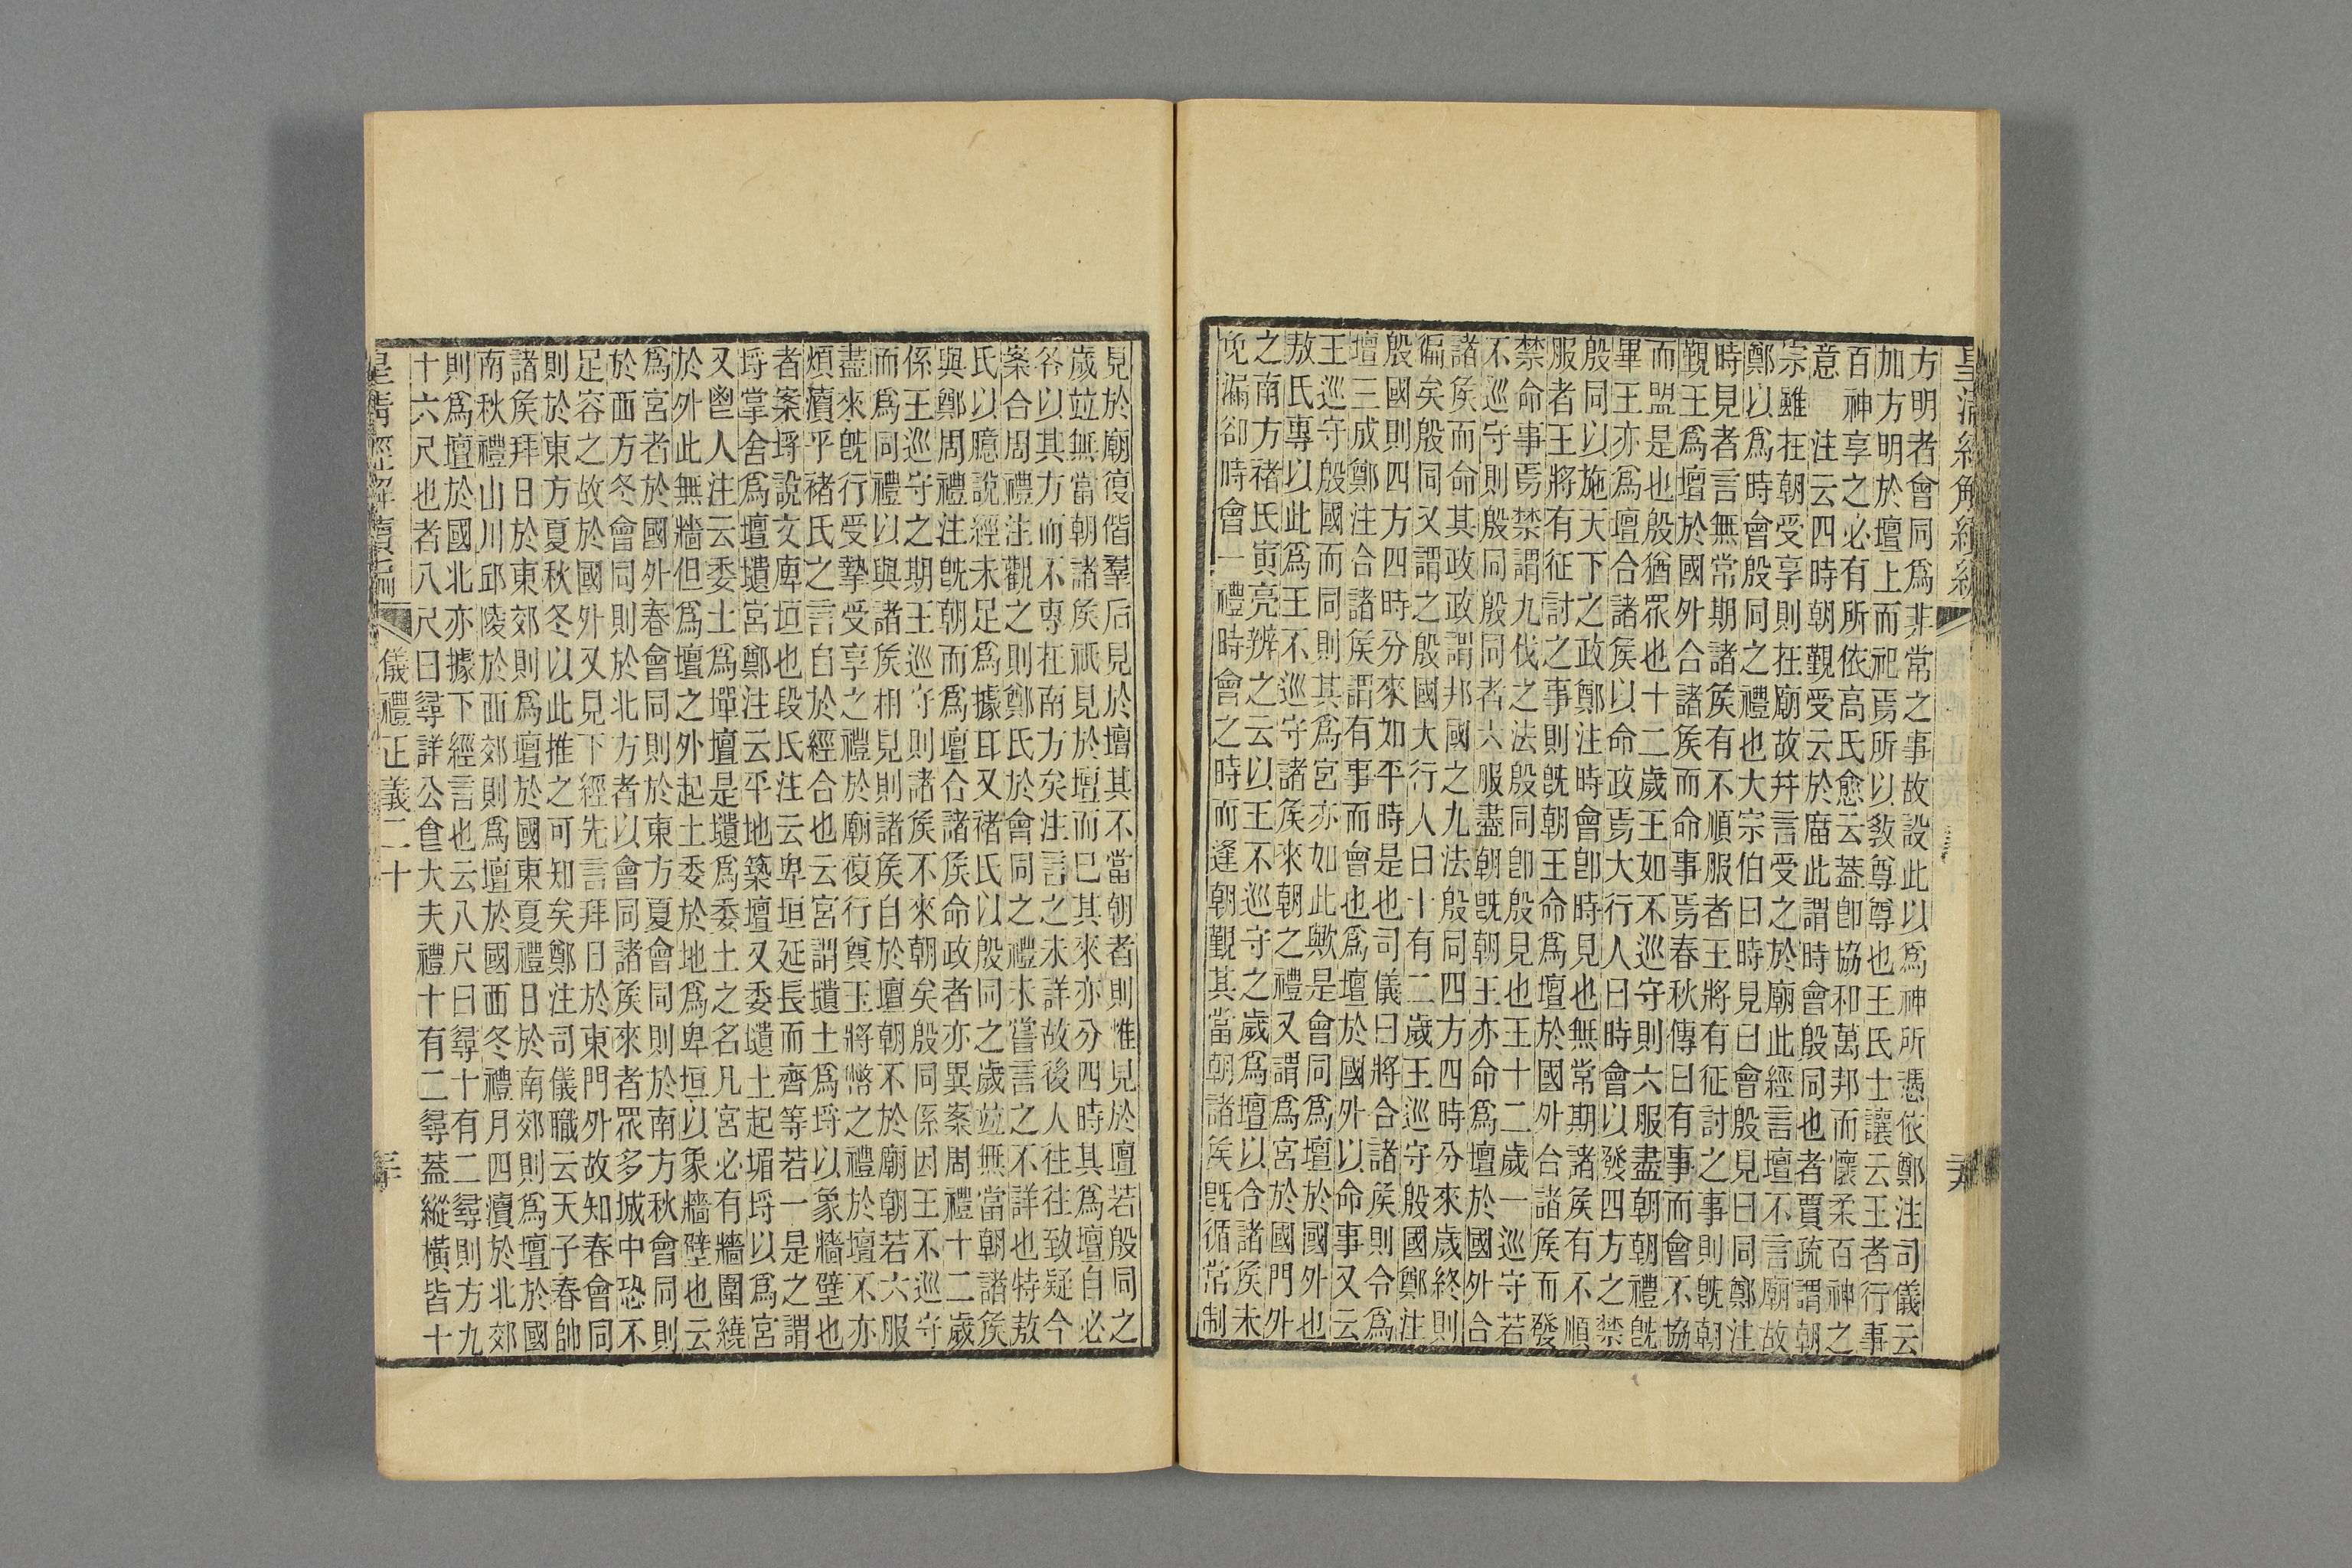 方明者會同爲非常之事故設此以爲神所憑依鄭注司儀云
加方明於壇上而祀焉所以敎尊尊也王氏士讓云王者行事
百神享之必有所依高氏愈云蓋卽協和萬邦而懷柔百神之
意　注云四時朝覲受云於庿此謂時會殷同也者賈疏謂朝
宗雖在朝受享則在廟故幷言受之於廟此經言壇不言廟故
鄭以爲時會殷同之禮也大宗伯曰時見曰會殷見曰同鄭注
時見者言無常期諸侯有不順服者王將有征討之事則旣朝
覲王爲壇於國外合諸侯而命事焉春秋傳曰有事而會不協
而盟是也殷猶眾也十二歲王如不巡守則六服盡朝朝禮旣
畢王亦爲壇合諸侯以命政焉大行人曰時會以發四方之禁
殷同以施天下之政鄭注時會卽時見也無常期諸侯有不順
服者王將有征討之事則旣朝王命爲壇於國外合諸侯而發
禁命事焉禁謂九伐之法殷同卽殷見也王十二歲一巡守若
不巡守則殷同殷同者六服盡朝旣朝王亦命爲壇於國外合
諸侯而命其政政謂邦國之九法殷同四方四時分來歲終則
徧矣殷同又謂之殷國大行人曰十有二歲王巡守殷國鄭注
殷國則四方四時分來如平時是也司儀曰將合諸侯則令爲
壇三成鄭注合諸侯謂有事而會也爲壇於國外以命事又云
王巡守殷國而同則其爲宮亦如此歟是會同爲壇於國外也
敖氏專以此爲王不巡守諸侯來朝之禮又謂爲宮於國門外
之南方褚氏寅亮辨之云以王不巡守之歲爲壇以合諸侯未
免漏卻時會一禮時會之時而逢朝覲其當朝諸侯旣循常制
見於廟復偕羣后見於壇其不當朝者則惟見於壇若殷同之
歲竝無當朝諸侯祇見於壇而已其來亦分四時其爲壇自必
各以其方而不專在南方矣注言之未詳故後人往往致疑今
案合周禮注觀之則鄭氏於會同之禮未嘗言之不詳也特敖
氏以臆說經未足爲據耳又褚氏以殷同之歲竝無當朝諸侯
與鄭周禮注旣朝而爲壇合諸侯命政者亦異案周禮十二歲
係王巡守之期王巡守則諸侯不來朝矣殷同係因王不巡守
而爲同禮以與諸侯相見則諸侯自於壇朝不於廟朝若六服
盡來旣行受摯受享之禮於廟復行奠玉將幣之禮於壇不亦
煩瀆乎褚氏之言自於經合也云宮謂壝土爲埒以象牆壁也
者案埒說文庳垣也段氏注云卑垣延長而齊等若一是之謂
埒掌舍爲壇壝宮鄭注云平地築壇又委壝土起堳埒以爲宮
又鬯人注云委土爲墠壇是壝爲委土之名凡宮必有牆圍繞
於外此無牆但爲壇之外起土委於地爲卑垣以象牆壁也云
爲宮者於國外春會同則於東方夏會同則於南方秋會同則
於西方冬會同則於北方者以會同諸侯來者眾多城中恐不
足容之故於國外又見下經先言拜日於東門外故知春會同
則於東方夏秋冬以此推之可知矣鄭注司儀職云天子春帥
諸侯拜日於東郊則爲壇於國東夏禮日於南郊則爲壇於國
南秋禮山川邱陵於西郊則爲壇於國西冬禮月四瀆於北郊
則爲壇於國北亦據下經言也云八尺曰尋十有二尋則方九
十六尺也者八尺曰尋詳公食大夫禮十有二尋蓋縱橫皆十
皇清經解續編　儀禮正義二十